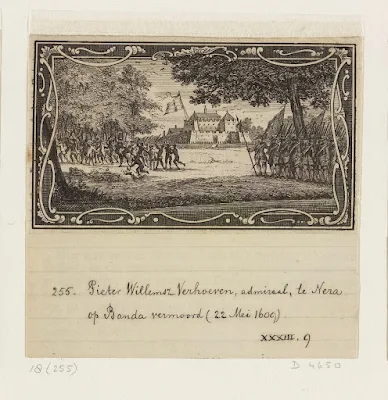 255. Pieter Willemsz Verhoeven, admiraal, te Nera
op Banda vermoord (22 Mei 1609)
XXXIII. 9
18 (255)
D 4650